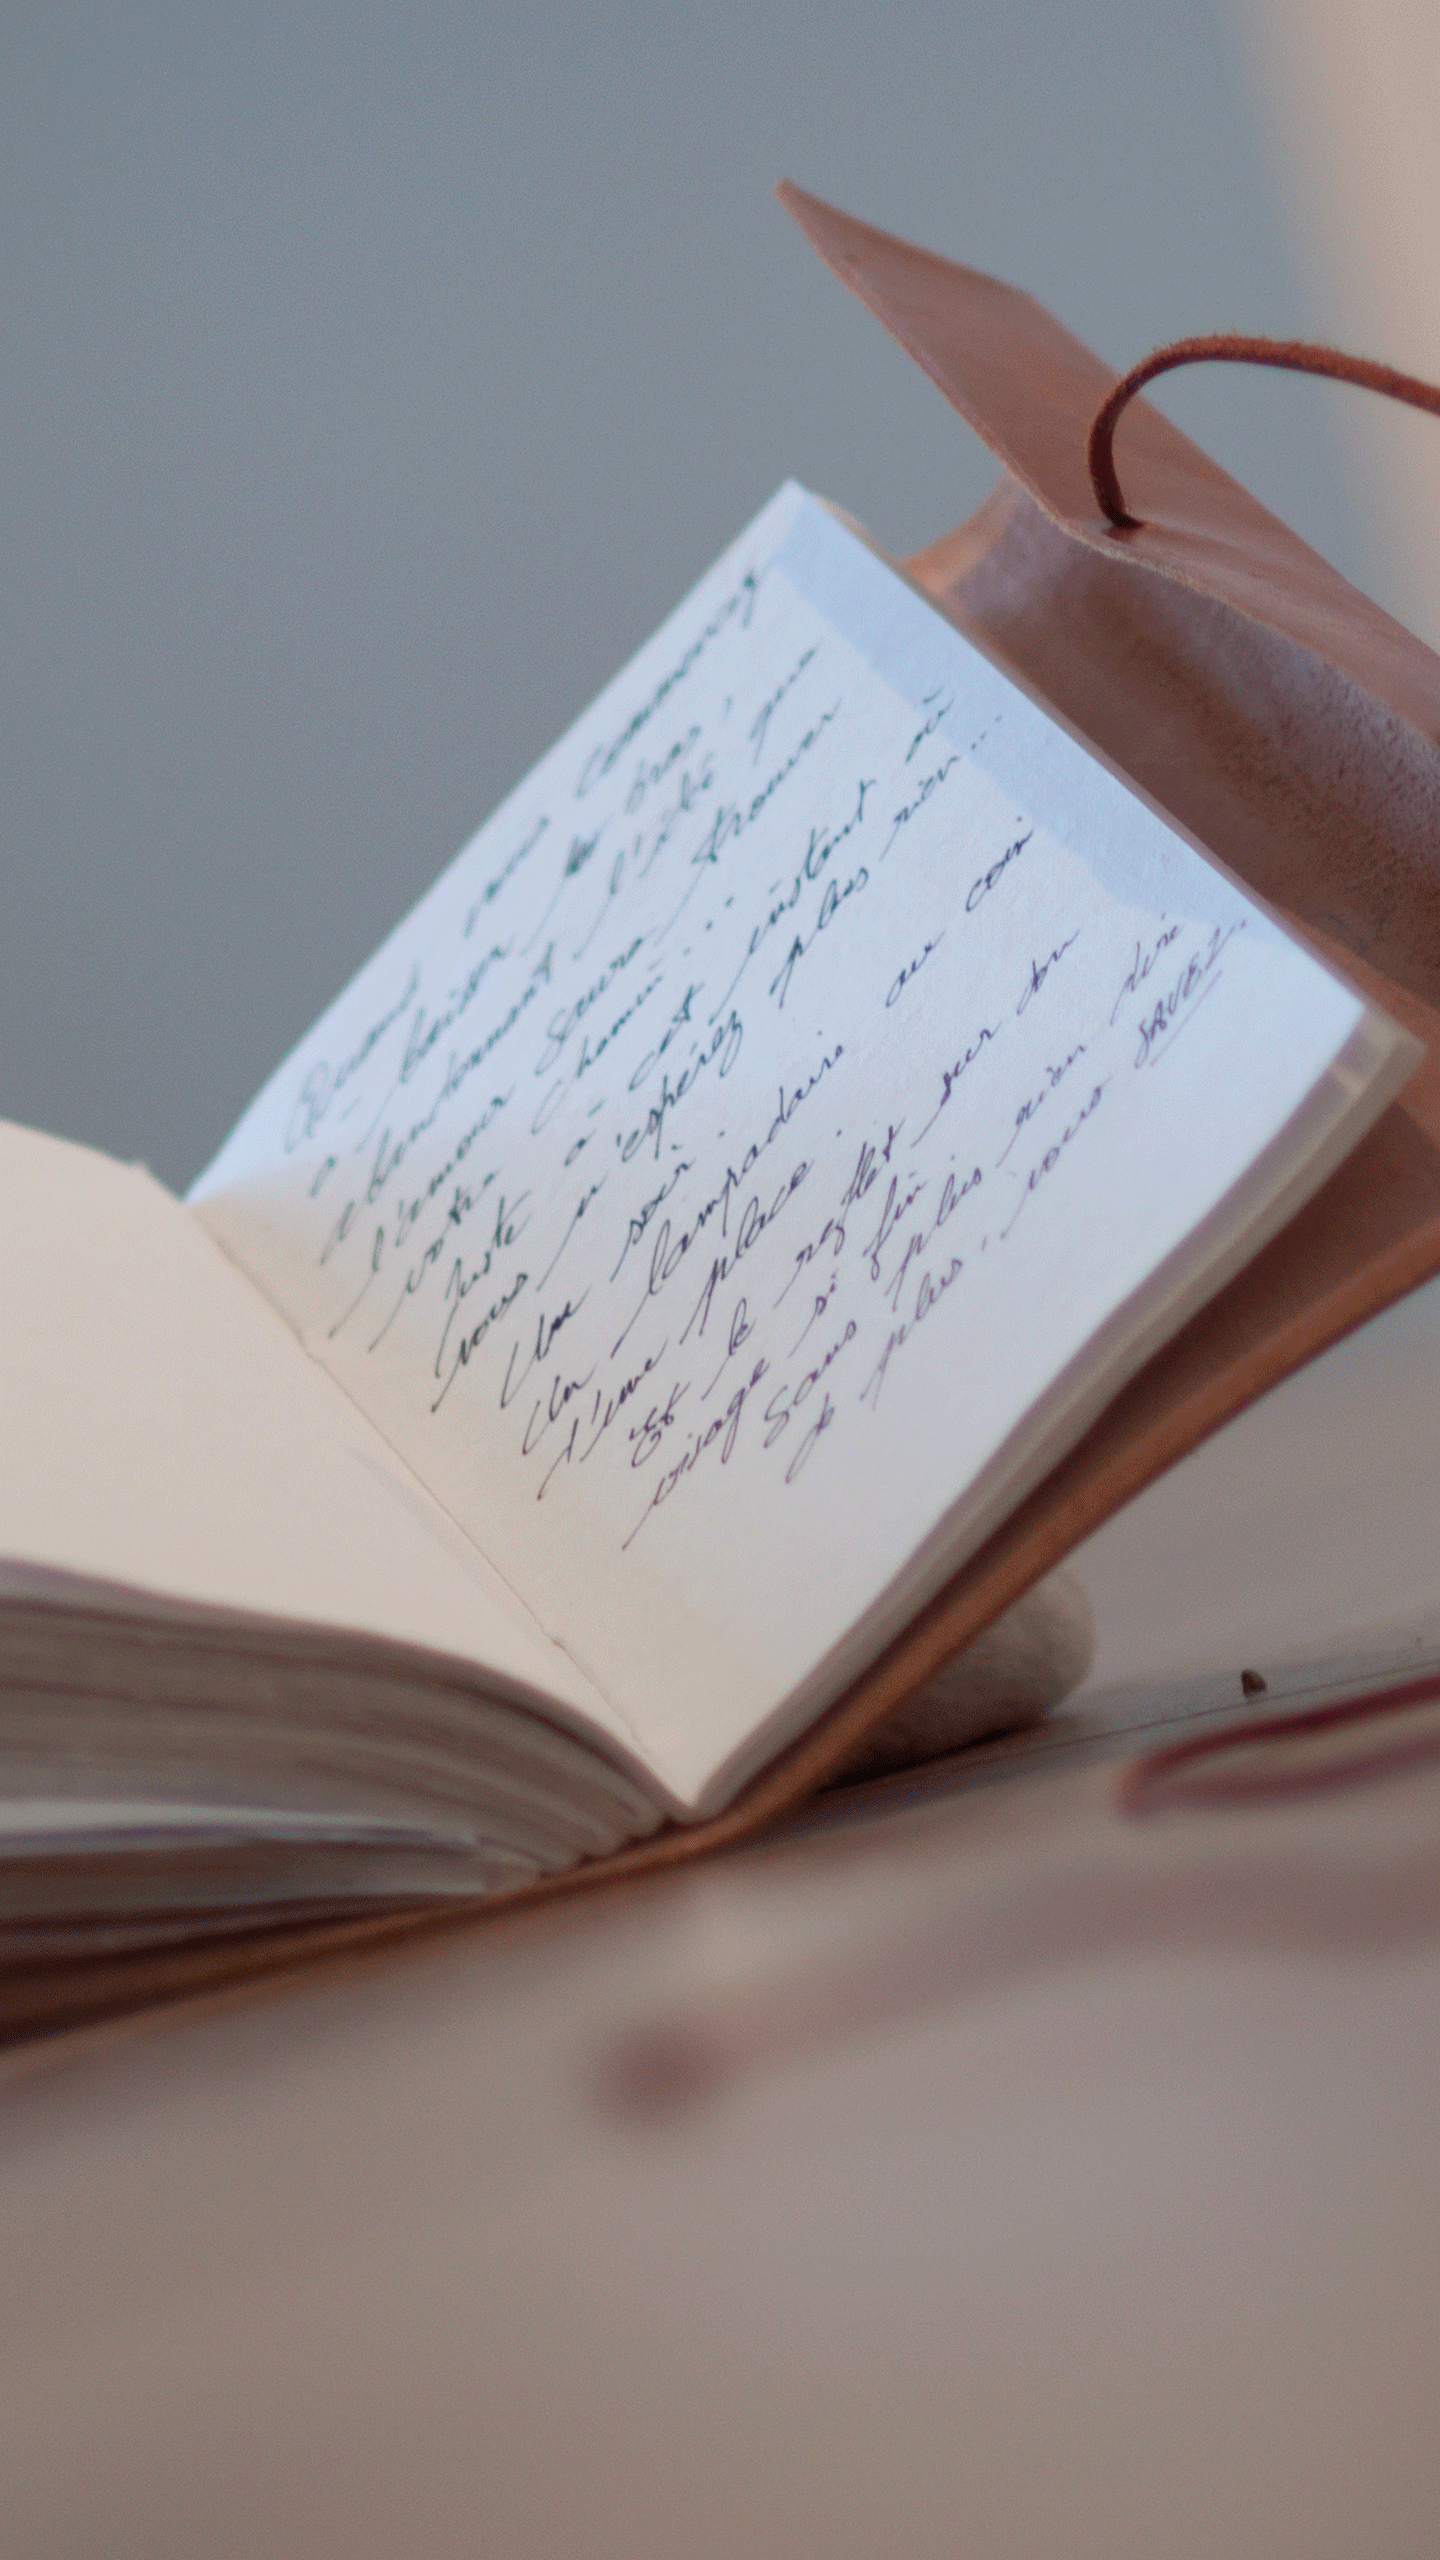 Quand vous commencez
à baisser les bras,
abandonnant l'idée que
l'amour saura trouver
votre chemin...
Juste à cet instant où
vous n'espérez plus rien...
Un soir.
Un lampadaire au coin
d'une place.
Et le reflet sur son
visage si fin
Sans plus rien dire
de plus, vous SAVEZ.